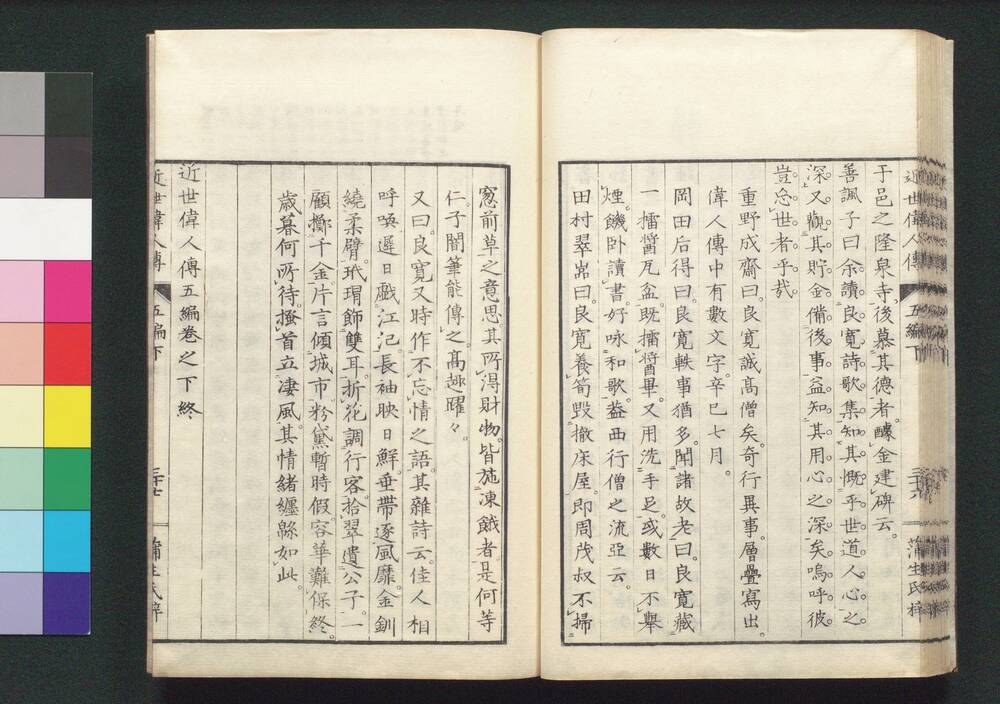 近世偉人傳 五編下 三十六 蒲生氏梓
于邑之隆泉寺後慕其德者醵金建碑云。
善諷子曰余讀良寛詩歌集知其慨乎世道人心之
深又觀其貯金備後事益知其用心之深矣嗚呼彼
豈忘世者乎哉
重野成齋曰良寛誠高僧矣奇行異事層疊寫出。
偉人傳中有數文字辛巳七月。
岡田后得曰良寛軼事猶多聞諸故老曰良寛藏
一擂醬瓦盆既擂醬畢又用洗手足或數日不擧
煙饑卧讀書好咏和歌葢西行僧之流亞云。
田村翠嵓曰良寛養筍毀撤床屋即周茂叔不掃
窻前草之意思其所得財物皆施凍餓者是何等
仁子闇筆能傳之高趣躍々。
又曰良寛又時作不忘情之語其雜詩云佳人相
呼喚遲日戲江汜長袖映日鮮垂帶逐風靡金釧
繞柔臂玳瑁飾雙耳折花調行客拾翠遺公子一
顧擲千金片言傾城市粉黛暫時假容華難保終。
歳暮何所待搔首立凄風其情緒纒緜如此。
近世偉人傳五編卷之下終
近世偉人傳 五編下 三十七 蒲生氏梓